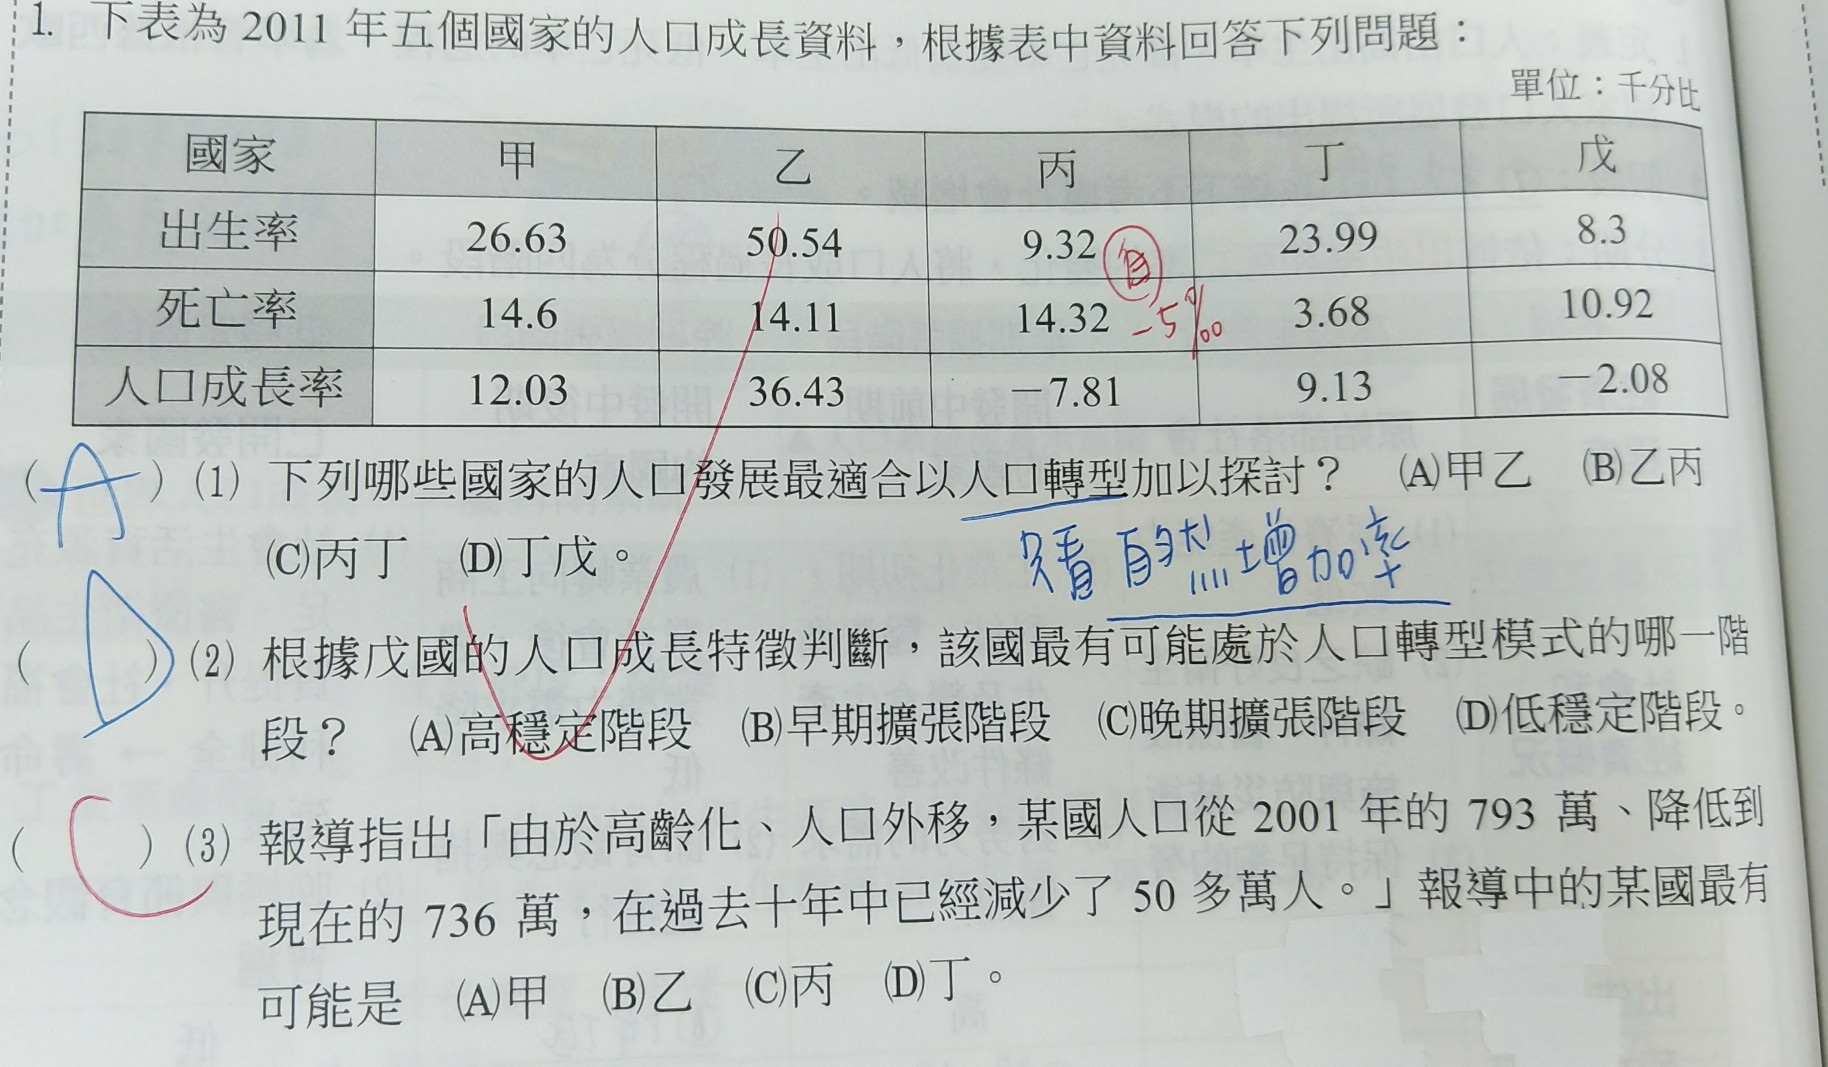 1. 下表為 2011 年五個國家的人口成長資料，根據表中資料回答下列問題：
單位：千分比
國家 甲 乙 丙 丁 戊
出生率 26.63 50.54 9.32 自 23.99 8.3
死亡率 14.6 14.11 14.32 -5‰ 3.68 10.92
人口成長率 12.03 36.43 －7.81 9.13 －2.08
( A ) (1) 下列哪些國家的人口發展最適合以人口轉型加以探討？ (A)甲乙 (B)乙丙
(C)丙丁 (D)丁戊。
只看自然增加率
( D ) (2) 根據戊國的人口成長特徵判斷，該國最有可能處於人口轉型模式的哪一階
段？ (A)高穩定階段 (B)早期擴張階段 (C)晚期擴張階段 (D)低穩定階段。
( C ) (3) 報導指出「由於高齡化、人口外移，某國人口從 2001 年的 793 萬、降低到
現在的 736 萬，在過去十年中已經減少了 50 多萬人。」報導中的某國最有
可能是 (A)甲 (B)乙 (C)丙 (D)丁。